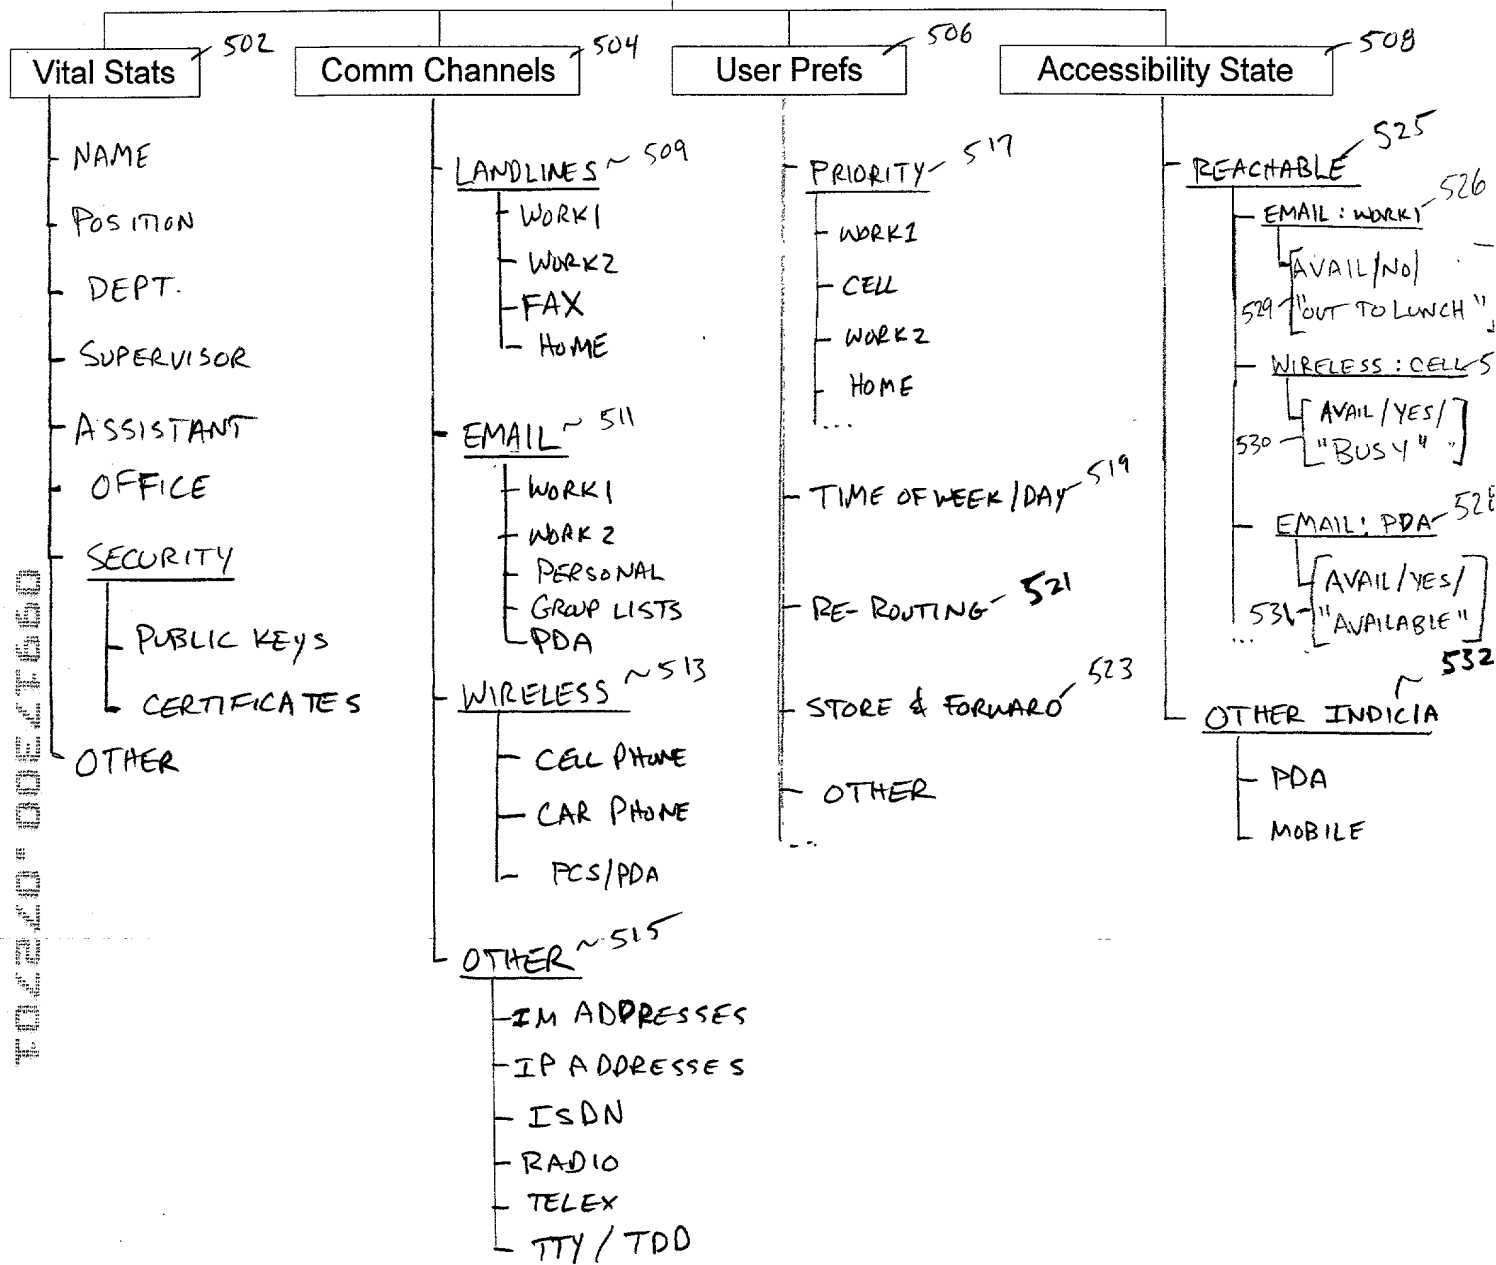 Vital Stats 502
NAME
POSITION
DEPT.
SUPERVISOR
ASSISTANT
OFFICE
SECURITY
PUBLIC KEYS
CERTIFICATES
OTHER
Comm Channels 504
LANDLINES ~ 509
WORK1
WORK2
FAX
HOME
EMAIL ~ 511
WORK1
WORK 2
PERSONAL
GROUP LISTS
PDA
WIRELESS ~ 513
CELL PHONE
CAR PHONE
PCS/PDA
OTHER ~ 515
IM ADDRESSES
IP ADDRESSES
ISDN
RADIO
TELEX
TTY / TDD
User Prefs 506
PRIORITY 517
WORK1
CELL
WORK2
HOME
...
TIME OF WEEK/DAY 519
RE-ROUTING 521
STORE & FORWARD 523
OTHER
...
Accessibility State 508
REACHABLE 525
EMAIL: WORK1 526
[AVAIL/NO/
529 "OUT TO LUNCH"]
WIRELESS: CELL 5
[AVAIL/YES/
530 "BUSY"]
EMAIL: PDA 528
[AVAIL/YES/
531 "AVAILABLE"]
...
532
OTHER INDICIA
PDA
MOBILE